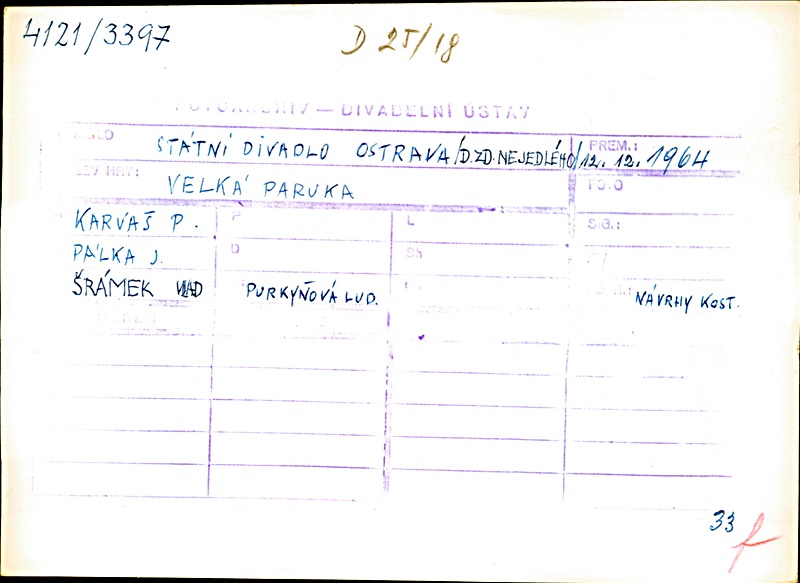 4121/3397
D 25/18
FOTOARCHIV — DIVADELNÍ ÚSTAV
STÁTNÍ DIVADLO OSTRAVA/D.ZD.NEJEDLÉHO/
PREM.:
12. 12. 1964
VELKÁ PARUKA
KARVAŠ P.
P
L
S.G.:
PÁLKA J.
D
Sh
ŠRÁMEK VLAD
PURKYŇOVÁ LUD.
NÁVRHY KOST.
33